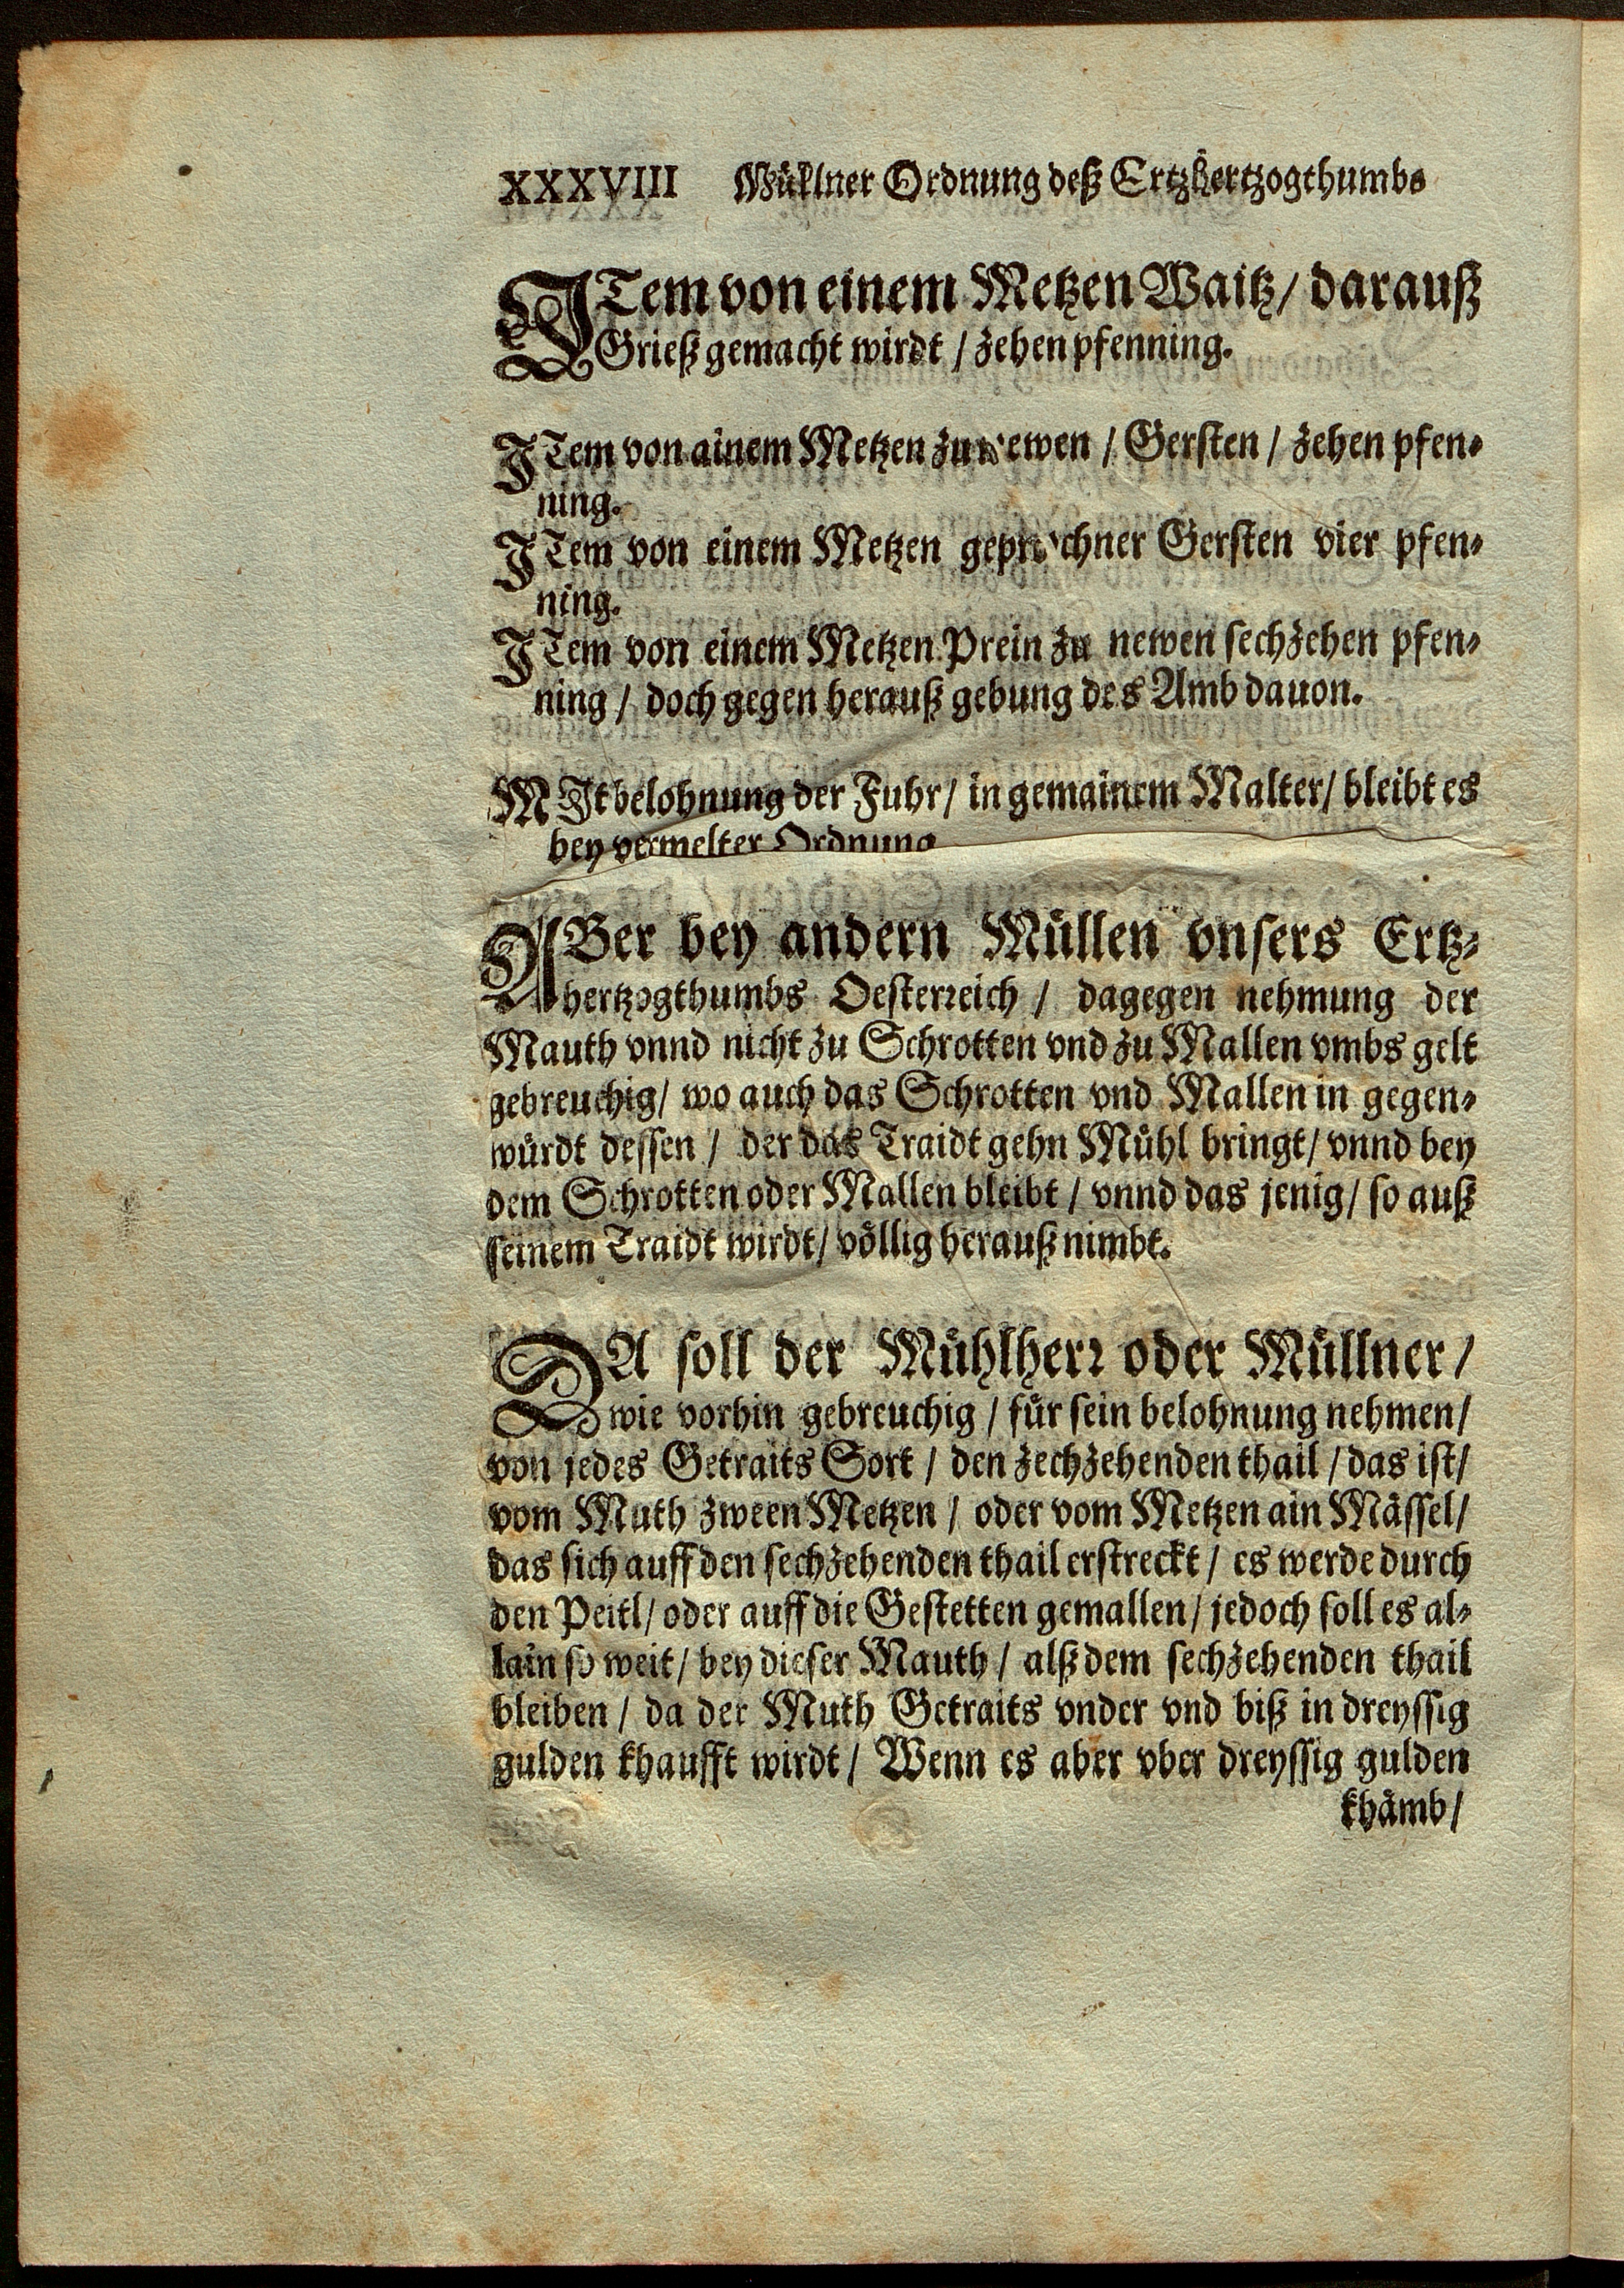 XXXVIII Müllner Ordnung deß Ertzhertzogthumbs
ITem von einem Metzen Waitz / darauß
Grieß gemacht wirdt / zehen pfenning.
ITem von ainem Metzen zu newen / Gersten / zehen pfen-
ning.
ITem von einem Metzen geprochner Gersten vier pfen-
ning.
ITem von einem Metzen Prein zu newen sechzehen pfen-
ning / doch gegen herauß gebung des Amb dauon.
MIt belohnung der Fuhr / in gemainem Malter / bleibt es
bey vermelter Ordnung
ABer bey andern Müllen vnsers Ertz-
hertzogthumbs Oesterreich / dagegen nehmung der
Mauth vnnd nicht zu Schrotten vnd zu Mallen vmbs gelt
gebreuchig / wo auch das Schrotten vnd Mallen in gegen-
würdt dessen / der das Traidt gehn Mühl bringt / vnnd bey
dem Schrotten oder Mallen bleibt / vnnd das jenig / so auß
seinem Traidt wirdt / völlig herauß nimbt.
DA soll der Mühlherr oder Müllner /
wie vorhin gebreuchig / für sein belohnung nehmen /
von jedes Getraits Sort / den zechzehenden thail / das ist /
vom Muth zween Metzen / oder vom Metzen ain Mässel /
das sich auff den sechzehenden thail erstreckt / es werde durch
den Peitl / oder auff die Gestetten gemallen / jedoch soll es al-
lain so weit / bey dieser Mauth / alß dem sechzehenden thail
bleiben / da der Muth Getraits vnder vnd biß in dreyssig
gulden khaufft wirdt / Wenn es aber vber dreyssig gulden
khämb /